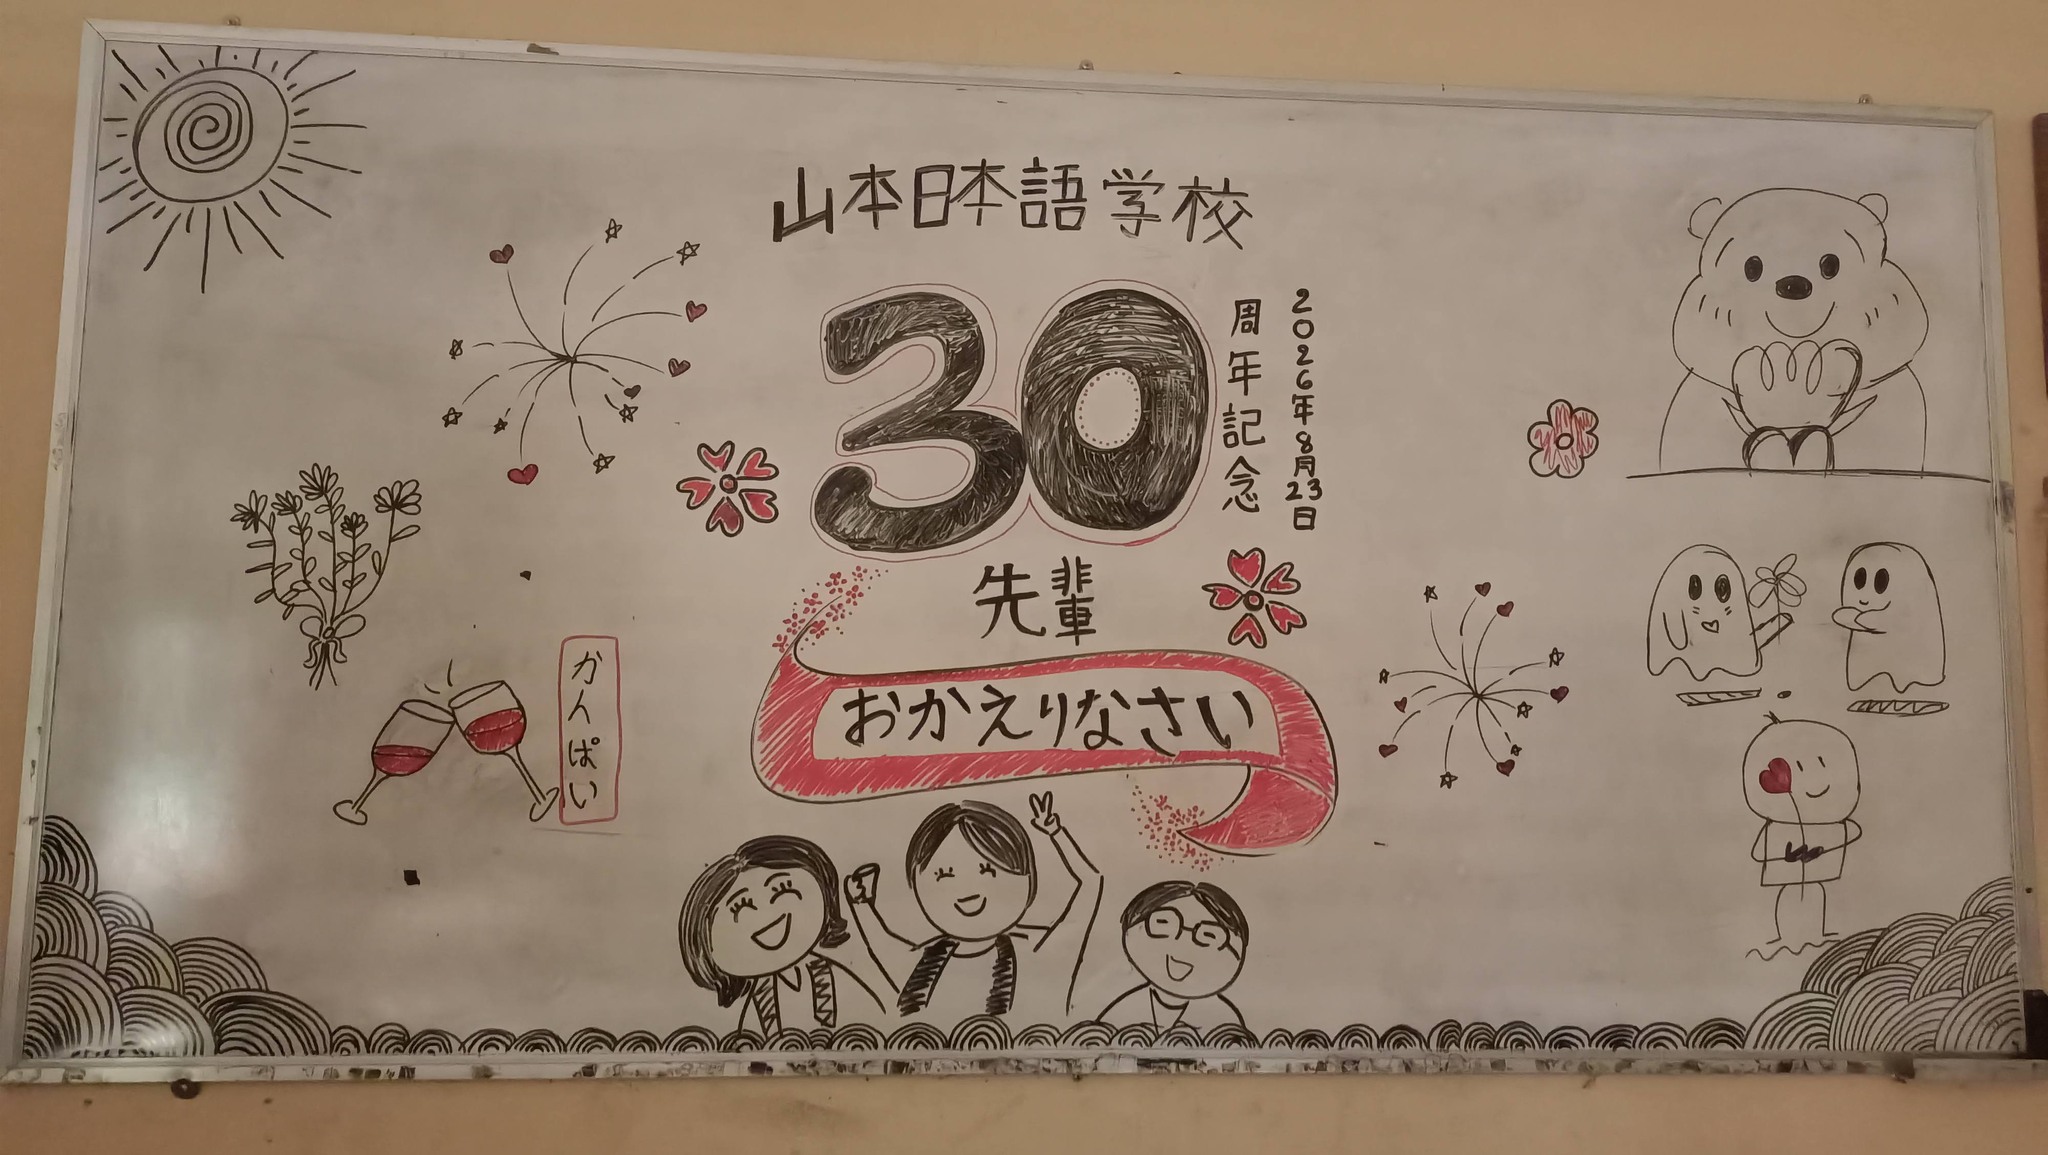 山本日本語学校
30
周年記念
2026年8月23日
先輩
おかえりなさい
かんぱい